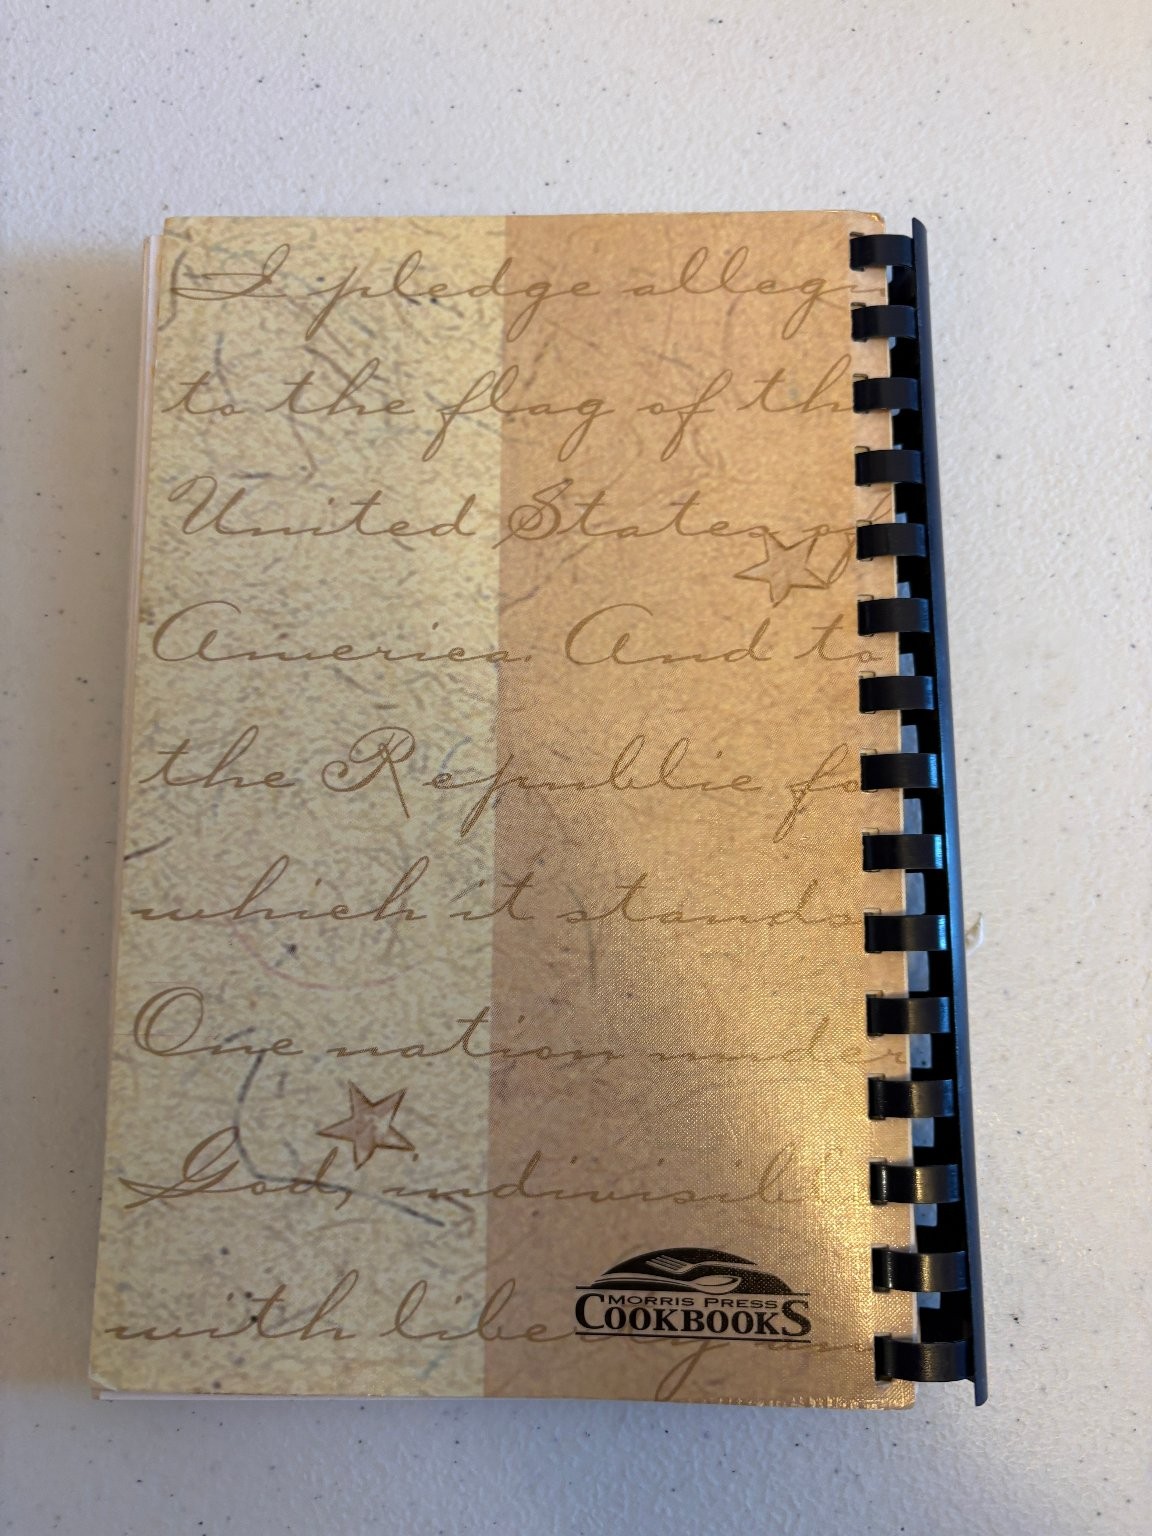 I pledge alleg
to the flag of th
United States of
America. And to
the Republic fo
which it stands
One nation under
God, indivisib
with liberty an
MORRIS PRESS
COOKBOOKS